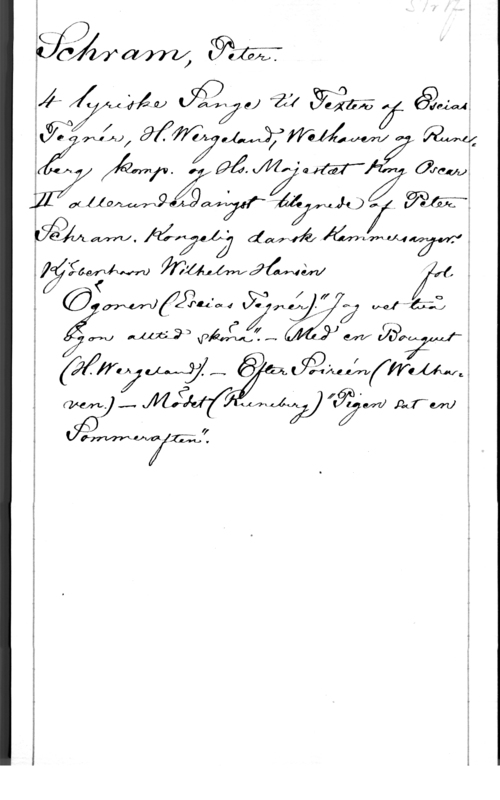 Schram, Peter.
4 lyriske Sange til Texter af Eseias
Tegnér, H. Wergeland, Welhaven og Rune-
berg komp. og Hs. Majestæt Kong Oscar
II allerunderdanigst tilegnede af Peter
Schram. Kongelig dansk Kammersanger.
Kjöbenhavn Wilhelm Hansen fol.
Ögonen (Eseias Tegnér). "Jag vet två
ögon alltid sköna". - Med en Bouquet
(H. Wergeland). - Efter Soiréen (Welha-
ven.) - Mödet (Runeberg) "Pigen sat en
Sommeraften".